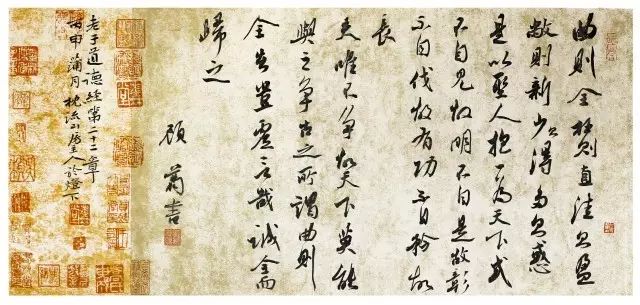 曲则全枉则直洼则盈
敝则新少则得多则惑
是以聖人抱一為天下式
不自見故明不自是故彰
不自伐故有功不自矜故
長
夫唯不争故天下莫能
與之争古之所謂曲则
全者豈虚言哉誠全而
歸之
顾
老子道德经第二十二章
丙申蒲月枕流主人於燈下